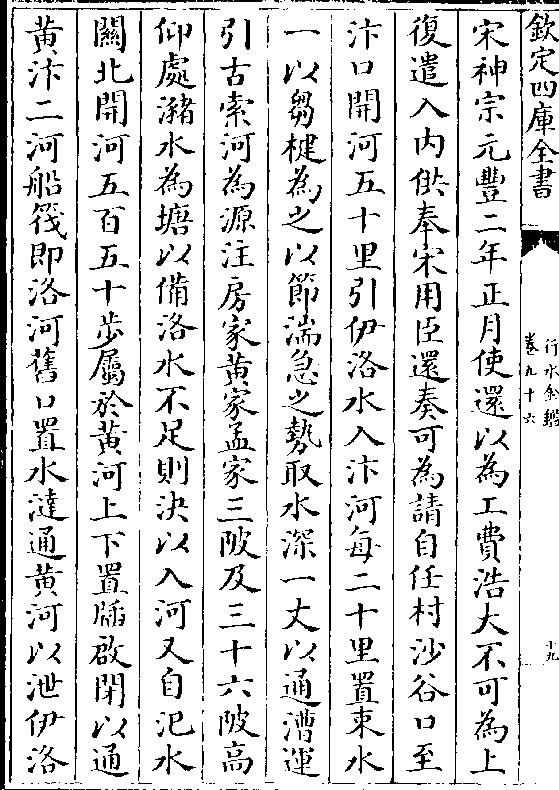 欽定四庫全書
行水金鑑
卷九十六
十九
宋神宗元豐二年正月使還以為工費浩大不可為上
復遣入内供奉宋用臣還奏可為請自任村沙谷口至
汴口開河五十里引伊洛水入汴河每二十里置束水
一以芻楗為之以節湍急之勢取水深一丈以通漕運
引古索河為源注房家黄家孟家三陂及三十六陂高
仰處瀦水為塘以備洛水不足則決以入河又自汜水
關北開河五百五十步屬於黄河上下置牐啟閉以通
黄汴二河船筏即洛河舊口置水澾通黄河以泄伊洛